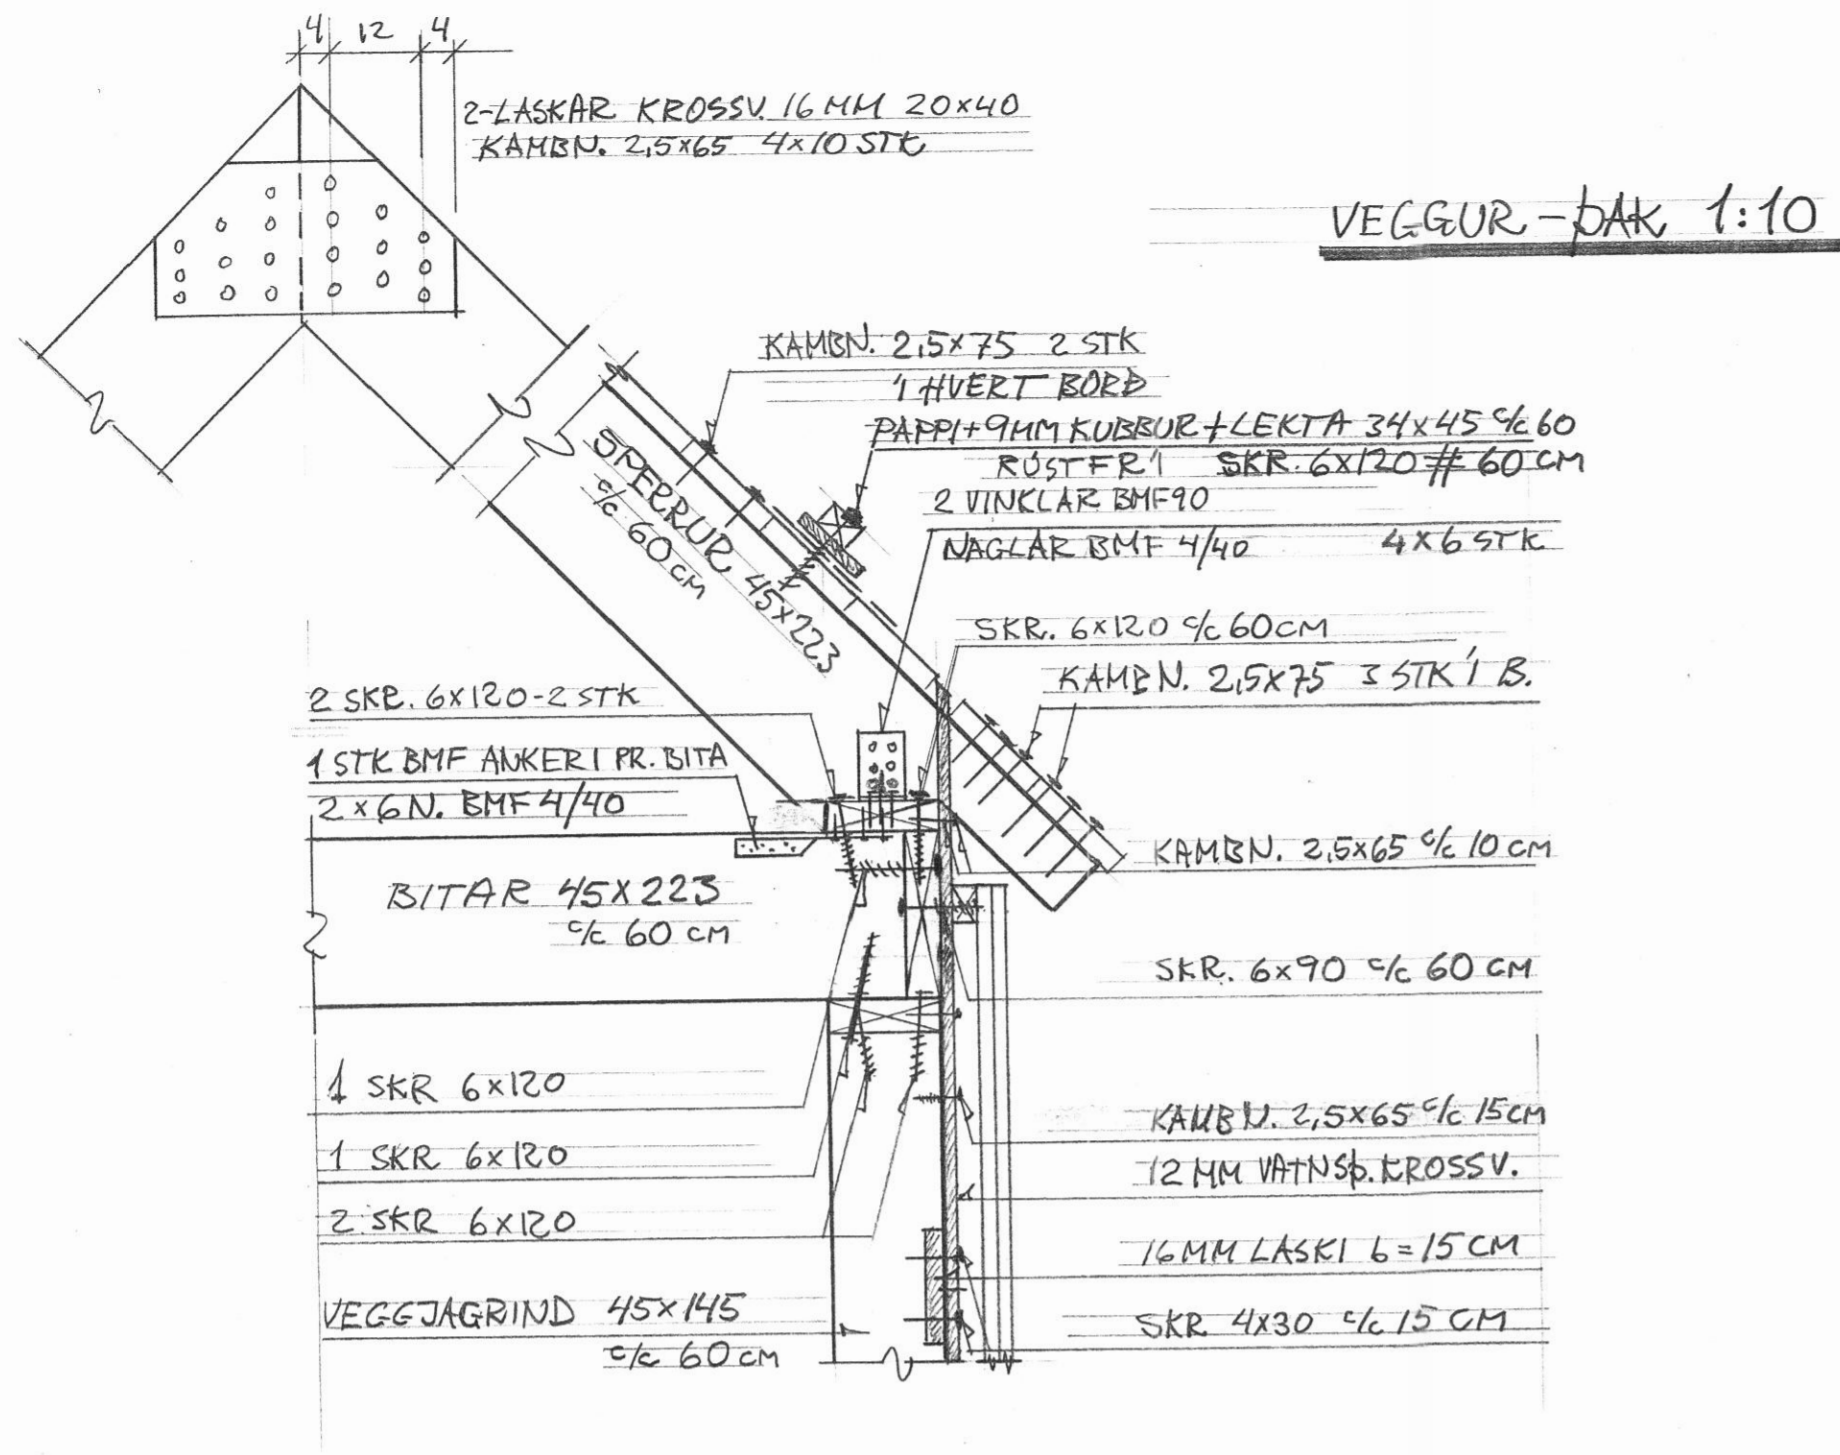 4 12 4
2-LASKAR KROSSV. 16 MM 20x40
KAMBN. 2,5x65 4x10 STK
VEGGUR - ÞAK 1:10
KAMBN. 2,5x75 2 STK
Í HVERT BORÐ
PAPPI + 9MM KUBBUR + LEKTA 34x45 c/c 60
RÚSTFRÍ SKR. 6x120 # 60 CM
2 VINKLAR BMF90
NAGLAR BMF 4/40 4x6 STK
SPERRUR 45x223
c/c 60 CM
SKR. 6x120 c/c 60CM
KAMBN. 2,5x75 3 STK Í B.
2 SKR. 6x120-2 STK
1 STK BMF ANKERI PR. BITA
2x6 N. BMF 4/40
KAMBN. 2,5x65 c/c 10 CM
BITAR 45x223
c/c 60 CM
SKR. 6x90 c/c 60 CM
1 SKR 6x120
KAMBN. 2,5x65 c/c 15CM
1 SKR 6x120
12 MM VATNSÞ. KROSSV.
2 SKR 6x120
16MM LASKI b=15 CM
VEGGJAGRIND 45x145
c/c 60 CM
SKR 4x30 c/c 15 CM